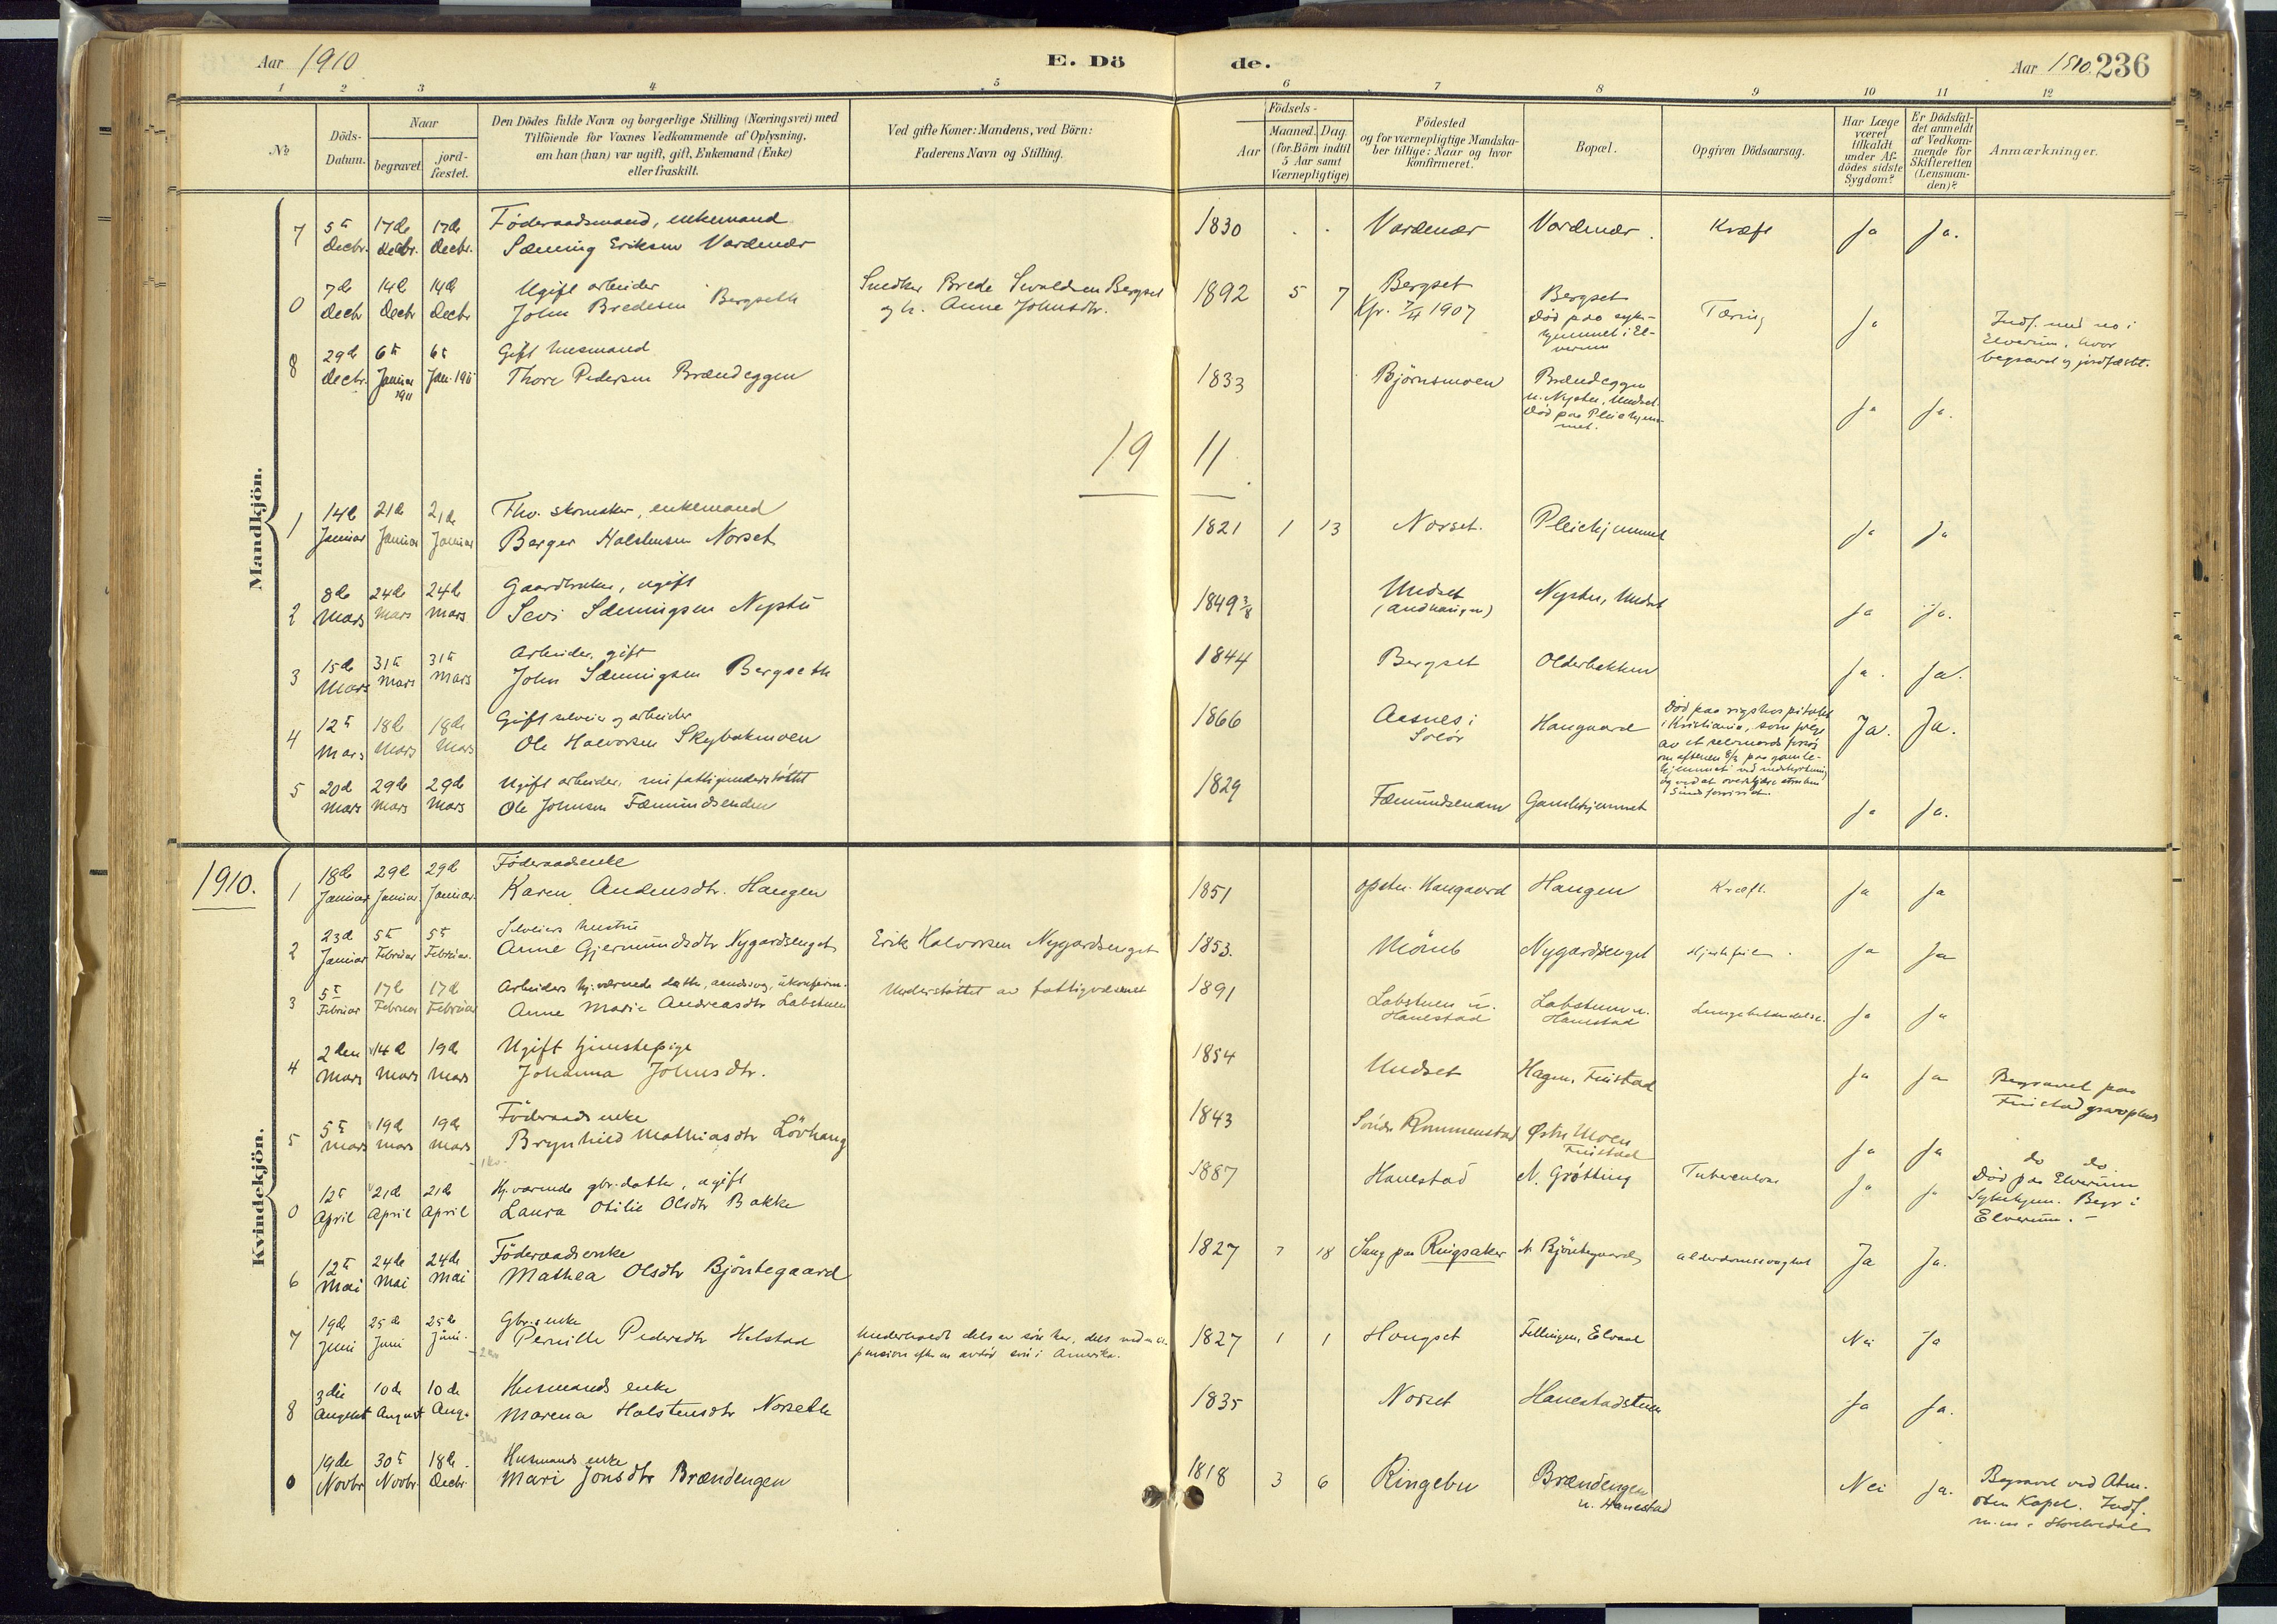 Aar 1910
E. Döde.
Aar 1910. 236
1 2 3 4 5 6 7 8 9 10 11 12
No
Döds-Datum.
Naar
begravet.
jord-fæstet.
Den Dödes fulde Navn og borgerlige Stilling (Næringsvei) med
Tilföiende for Voxnes Vedkommende af Oplysning,
om han (hun) var ugift, gift, Enkemand (Enke)
eller fraskilt.
Ved gifte Koner: Mandens, ved Börn:
Faderens Navn og Stilling.
Födsels-
Aar
Maaned. Dag.
(for Börn indtil
5 Aar samt
Værnepligtige)
Födested
og for værnepligtige Mandska-
ber tillige: Naar og hvor
konfirmeret.
Bopæl.
Opgiven Dödsaarsag.
Har Læge
været
tilkaldt
under Af-
dödes sidste
Sygdom?
Er Dödsfal-
det anmeldt
af Vedkom-
mende for
Skifteretten
(Lensman-
den)?
Anmærkninger.
Mandkjön.
7 5te Decbr. 17de Decbr. 17de Decbr.
Föderaadsmand, enkemand
Sæming Eriksen Vardenær
1830 Vardenær Vardenær. Kræft Ja Ja.
0 7de Decbr 14de Decbr 14de Decbr
Ugift arbeider
John Bredesen Bergseth
Snedker Brede Sivaldsen Bergset
og h. Anne Johnsdtr.
1892 5 7 Bergset
Kfr. 1907
Bergset
Död paa syke-
hjemmet i El-
verum
Tæring Ja
Indf. med no i
Elverum, hvor
begravet og jordfæstet.
8 29de Decbr. 6te Januar 1911 6te Jan. 1911
Gift husmand
Thore Pedersen Brændeggen
1833 Björnsmoen Brændeggen
u. Nystu, Undset.
Död paa Pleiehjem-
met.
Ja Ja.
1911.
1 14de Januar 21de Januar 21de Januar
Fhv. skomaker, enkemand
Berger Halstensen Norset
1821 1 13 Norset. Pleiehjemmet Ja Ja
2 8de Mars 24de Mars 24de Mars
Gaardbruker, ugift
Sevi Sæmingsen Nystu
1849 3/8 Undset
Nystu, Undset Ja Ja.
3 15de Mars 31te Mars 31te Mars
Arbeider, gift
John Sæmingsen Bergseth
1844 Bergset Olderbekken Ja. Ja.
4 12te Mars 18de Mars 18de Mars
Gift selveier og arbeider
Ole Halvorsen Skybakmoen
1866 Aasnes i
Solör
Haugaard
Död paa rigshospitalet
i Kristiania, som fölge
av et selvmordsforsög
Ja. Ja.
5 20de Mars 29de Mars 29de Mars
Ugift arbeider, nu fattigunderstöttet
Ole Johnsen Fæmundsenden
1829 Fæmundsenden Gamlehjemmet Ja Ja.
1910.
Kvindekjön.
1 18de Januar 29de Januar. 29de Januar.
Föderaadsenke
Karen Andersdtr. Haugen
1851 opstu. Haugaard Haugen Kræft. Ja Ja
2 23de Januar 5te Februar 5te Februar.
Selveiers hustru
Anne Gjermundsdtr Nygardsenget
Erik Halvorsen Nygardsenget
1853. Mömb Nygardsenget Hjertefeil. Ja Ja
3 5te Februar 17de Februar 17de Februar
Arbeiders hj. værende datter, aandssvag, ukonfirm.
Anne Marie Andreasdtr Labstuen
Understöttet av fattigvæsenet
1891 Labstuen u.
Hanestad
Labstuen u.
Hanestad
Lungebetændelse. Ja Ja
4 2den Mars 14de Mars 19de Mars
Ugift tjenstepige
Johanna Johnsdtr.
1854 Undset Hagen, Finstad Ja Ja
Begravet paa
Finstad gravplads
5 5te Mars 19de Mars 19de Mars
Föderaadsenke
Brynhild Mathiasdtr Lövhaug
1843 Söndr Rommenstad Østre Moen
Finstad
Ja Ja do do.
0 12te April 21de April 21de April
Hj. værende gbr. datter, ugift
Laura Otilie Olsdtr Bakke
1887 Hanestad N. Gröttting Tuberculose Ja Ja
Död paa Elverum
Sykehjem. Begr i
Elverum. -
6 12te Mai 24de Mai 24de Mai
Föderaadsenke
Mathea Olsdtr Björntegaard
1827 7 18 Saug paa Ringsaker N. Björntegaard Alderdomssvaghet Ja Ja.
7 19de Juni 25de Juni 25de Juni.
Gbr.s enke
Pernille Pedersdtr Helstad
Underholdt dels av sön her, dels ved m.
pension efter en avdöd sön i Amerika.
1827 1 1 Hougset Fellingen, Elvaal Nei Ja
8 3die August 10de August 10de Aug.
Husmands enke
Marena Halstensdtr Norseth
1835 Norset Hanestadstuen Ja Ja.
0 19de Novbr 30te Novbr. 18de Decbr.
Husmands enke
Mari Jonsdtr Brændengen
1818 3 6 Ringebu Brændengen
u. Hanestad
Nei Ja.
Begravet ved Atne-
osen Kapel. Indf.
m. no i Storelvedal